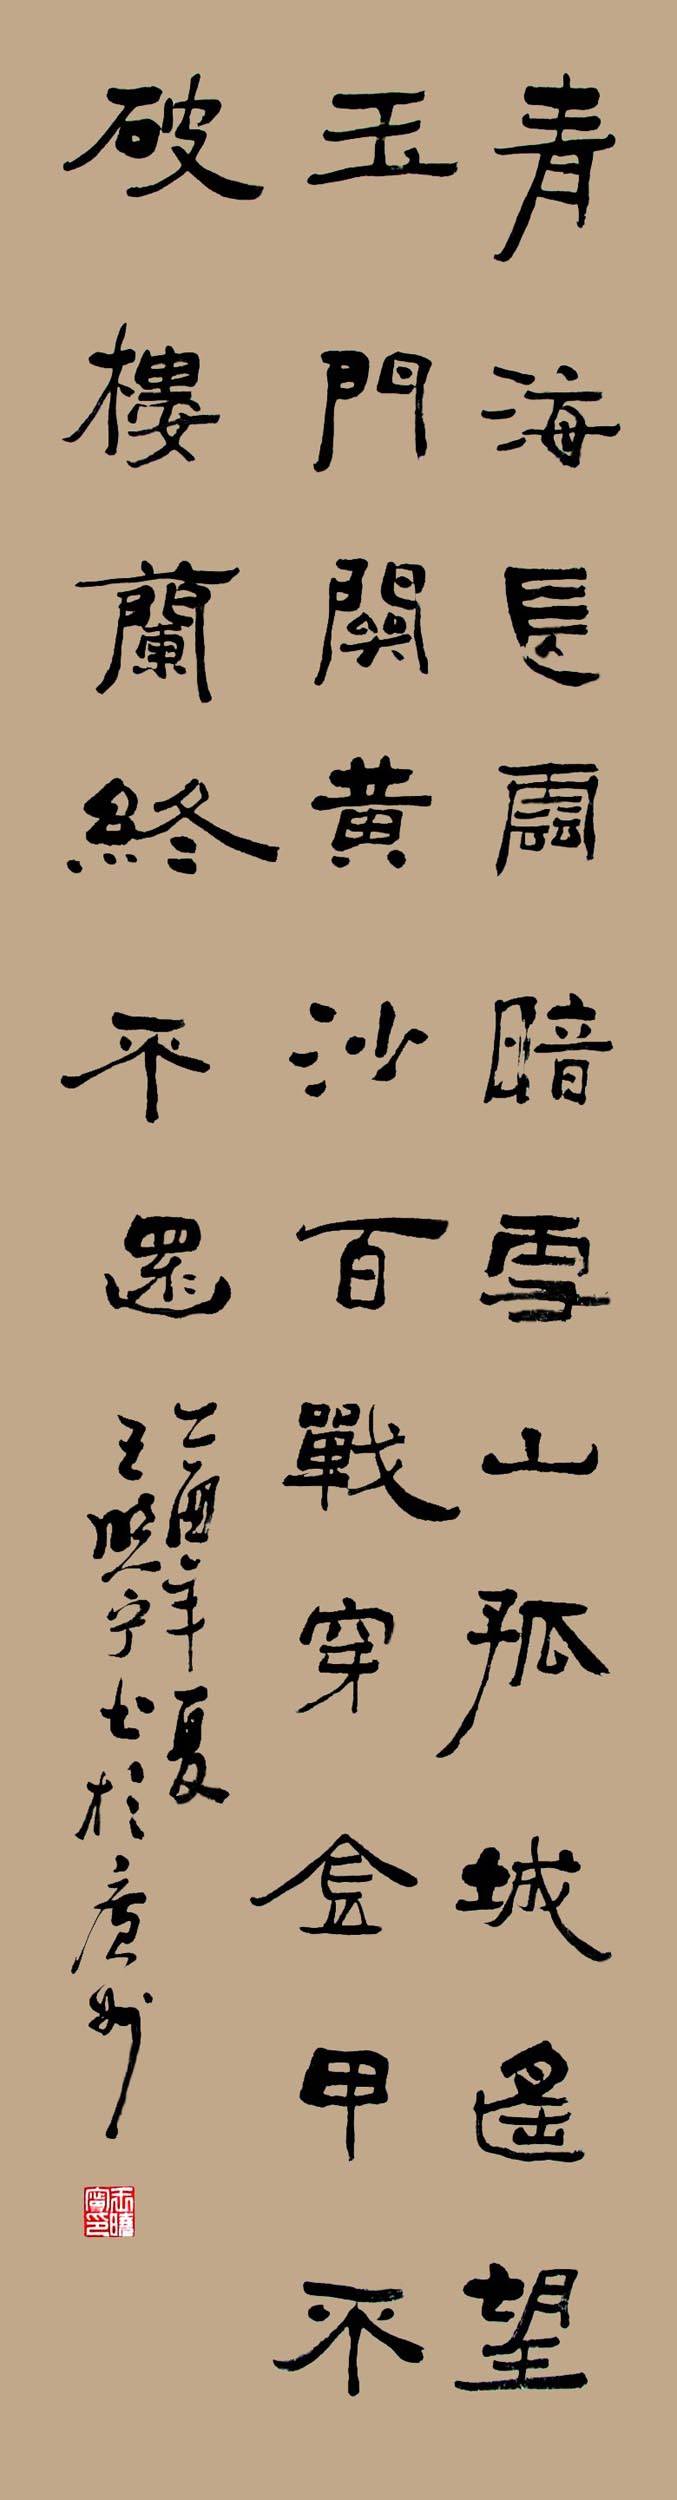 青海長雲暗雪山孤城遙望
玉門關黃沙百戰穿金甲不
破樓蘭終不還
丁酉年夏
王曉寧書於廣州
王曉寧印